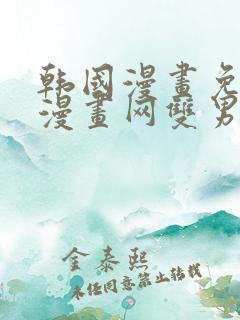 韩国漫畫免
漫畫网雙男
金泰熙
未经同意禁止转载